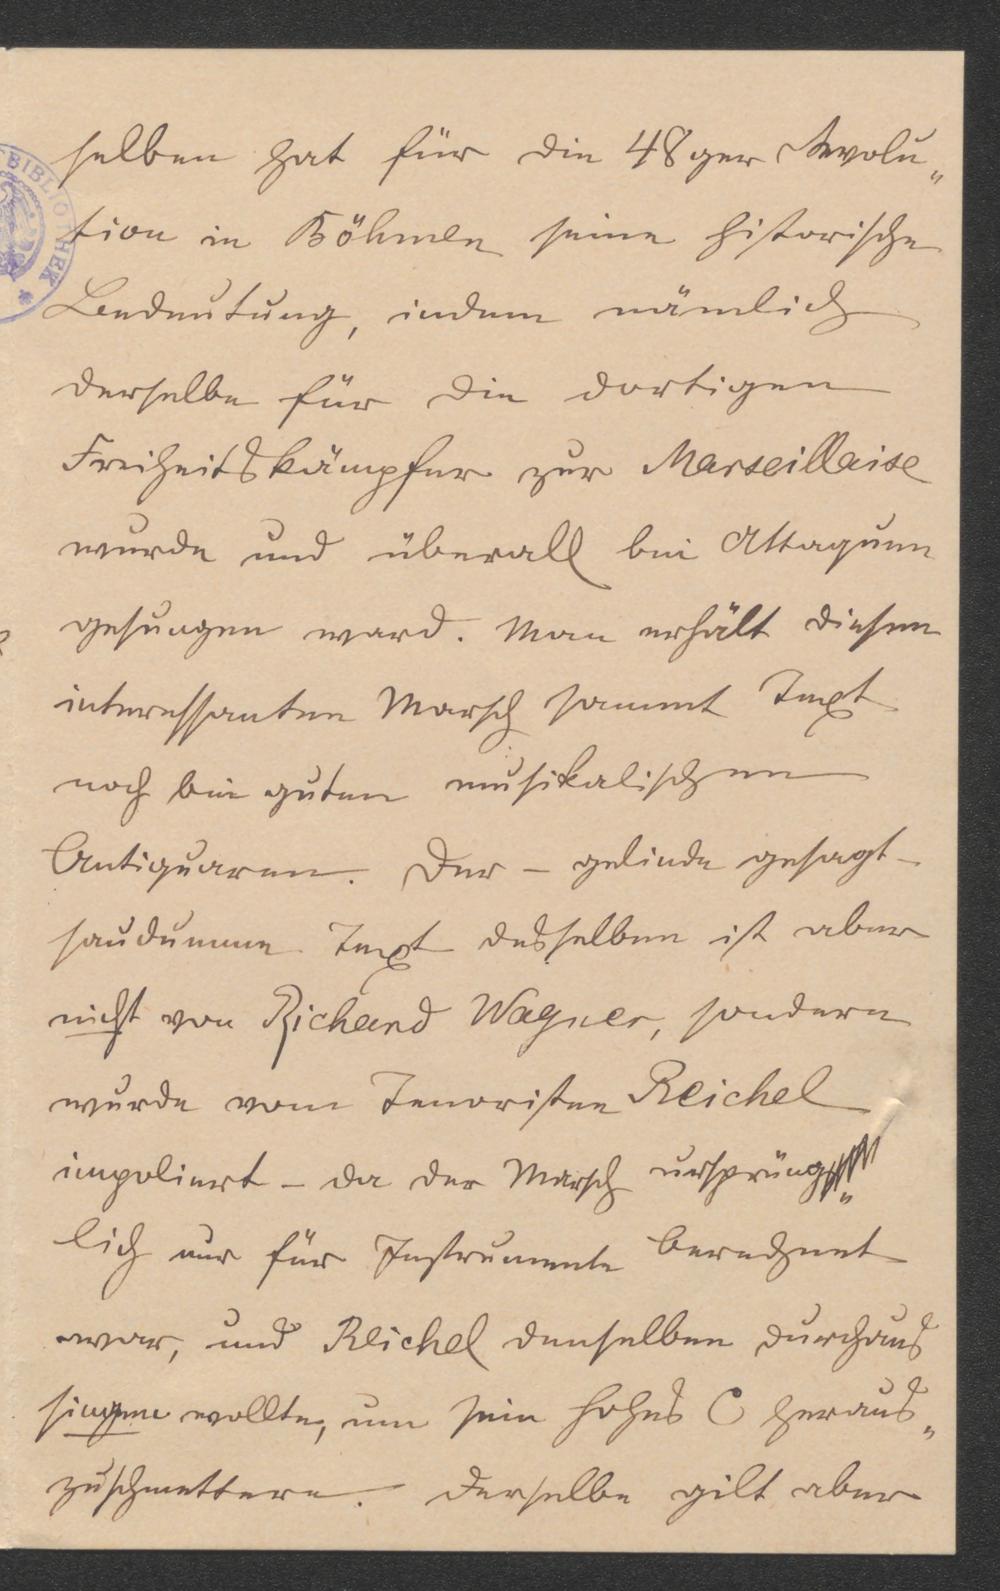 selben hat für die 48ger Revolu„
tion in Böhmen seine historische
Bedeutung, indem nämlich
derselbe für die dortigen
Freiheitskämpfer zur Marseillaise
wurde und überall bei Attaquen
gesungen ward. Man erhält diesen
interessanten Marsch sammt Text
noch bei guten musikalischen
Antiquaren. Der – gelinde gesagt –
saudumme Text desselben ist aber
nicht von Richard Wagner, sondern
wurde vom Tenoristen Reichel
impoliert – da der Marsch ursprüng„
lich nur für Instrumente berechnet
war, und Reichel denselben durchaus
singen wollte, um sein hohes C heraus„
zuschmettern. Derselbe gilt aber
BIBLIOTHEK